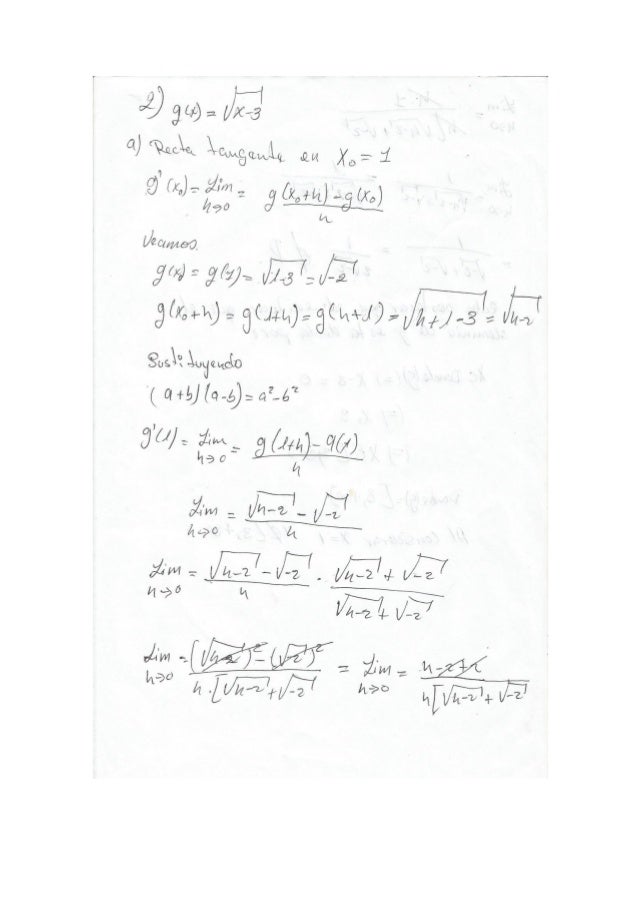 2) g(x) = √x-3
a) Recta tangente en X₀ = 1
g'(x₀) = Lim h→0 = g(x₀+h) - g(x₀) / h
Veamos
g(x₀) = g(1) = √1-3 = √-2
g(x₀+h) = g(1+h) = g(h+1) = √h+1-3 = √h-2
Sustituyendo
(a+b)(a-b) = a²-b²
g'(1) = Lim h→0 = g(1+h) - g(1) / h
Lim h→0 = √h-2 - √-2 / h
Lim h→0 = √h-2 - √-2 / h · √h-2 + √-2 / √h-2 + √-2
Lim h→0 = (√h-2)² - (√-2)² / h·[√h-2 + √-2 = Lim h→0 = h-2+2 / h[√h-2 + √-2